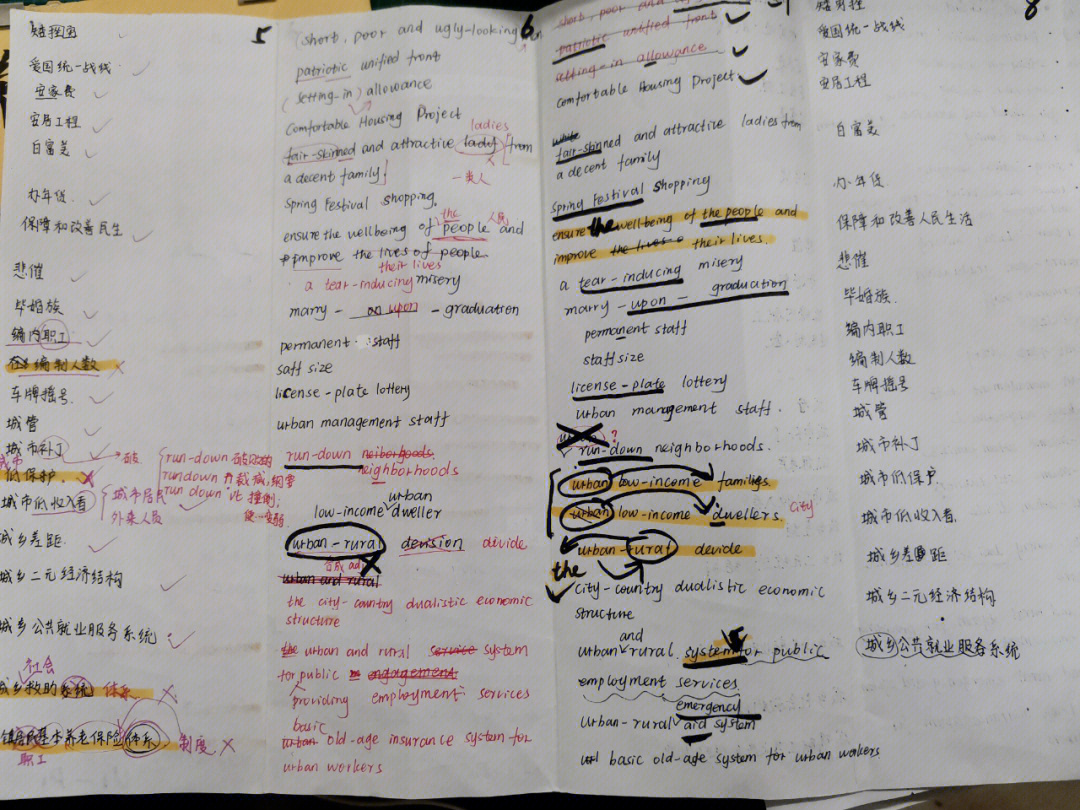 矮挫穷
爱国统一战线
安家费
安居工程
白富美
办年货
保障和改善民生
悲催
毕婚族
编内职工
编制人数
车牌摇号
城管
城市补丁
城市
低保护
城市低收入者
城市居民
外来人员
城乡差距
城乡二元经济结构
城乡公共就业服务系统
社会
城乡救助系统 体系
基本养老保险体系 制度
职工
5
6
(short, poor and ugly-looking
patriotic unified front
(setting-in) allowance
Comfortable Housing Project
ladies
fair-skinned and attractive lady from
a decent family
一类人
Spring Festival shopping.
the 人民
ensure the wellbeing of people and
improve the lives of people
their lives
a tear-inducing misery
marry - on upon - graduation
permanent staff
saff size
license-plate lottery
urban management staff
run-down neiborhoods.
neighborhoods
run-down 破败的
rundown n 裁减,纲要
run down vt 撞倒,
使…变弱
urban
low-income dweller
urban-rural devision divide
合成adj
urban and rural
the city-country dualistic economic
structure
the urban and rural service system
for public engagement
providing employment services
basic
urban old-age insurance system for
urban workers
short, poor and
patriotic unified front
setting-in allowance
Comfortable Housing Project
white
fair-skinned and attractive ladies from
a decent family
Spring Festival Shopping
ensure the wellbeing of the people and
improve the lives o their lives.
a tear-inducing misery
marry - upon - graduation
permanent staff
staff size
license-plate lottery
urban management staff.
?
run-down neighborhoods.
urban low-income families.
urban low-income dwellers. city
urban-rural devide
the
city-country dualistic economic
structure
and
urban rural system for public
employment services
emergency
Urban-rural aid system
basic old-age system for urban workers
8
矮穷
爱国统一战线
安家费
安居工程
白富美
办年货
保障和改善人民生活
悲催
毕婚族
编内职工
编制人数
车牌摇号
城管
城市补丁
城市低保护
城市低收入者.
城乡差距
城乡二元经济结构
城乡公共就业服务系统